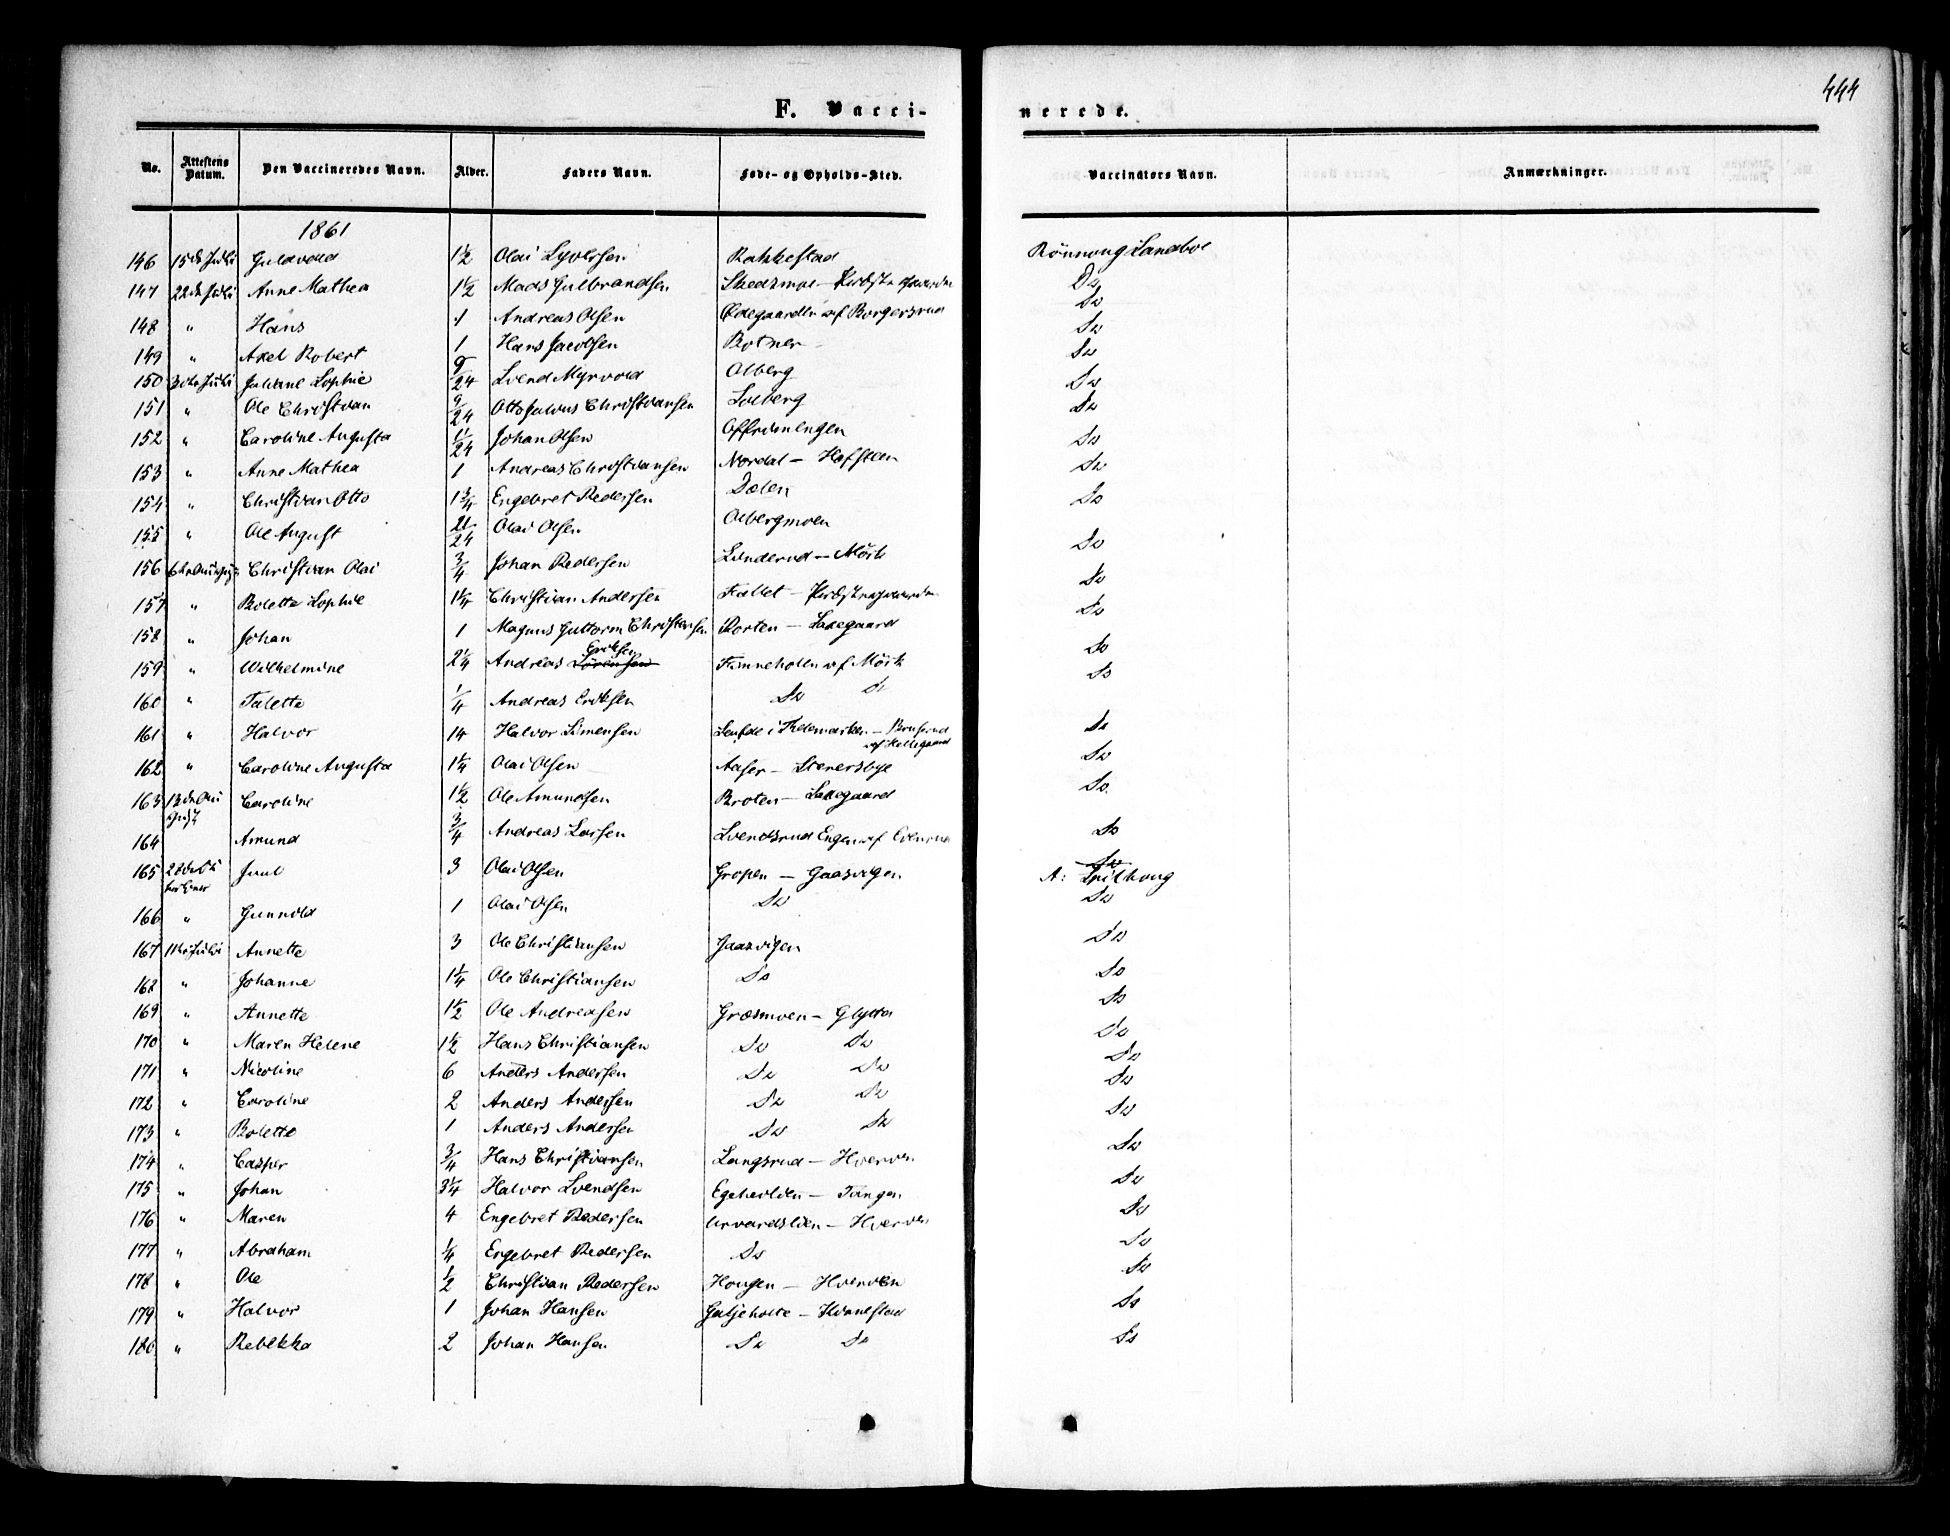 444
F. Vacci-
nerede.
No. Attestens Datum. Den Vaccineredes Navn. Alder. Faders Navn. Føde- og Opholds-Sted. Vaccinators Navn. Anmærkninger.
1861
146 15de Juli Guldvold 1 1/2 Olai Syversen Rakkestad Rönnoug Sandboe
147 22de Juli Anne Mathea 1 1/2 Mads Gulbrandsen Skedsmoe - Do
148 " Hans 1 Andreas Olsen Ødegaarden af Borgersrud Do
149 " Axel Robert 1 Hans Jacobsen Botner Do
150 30te Juli Juliane Sophie 9/24 Svend Myrvold Olberg Do
151 " Ole Christian 9/24 Otto Julius Christiansen Solberg Do
152 " Caroline Augusta 11/24 Johan Olsen Do
153 " Anne Mathea 1 Andreas Christiansen Nordal - Hafsteen Do
154 " Christian Otto 1 3/4 Engebret Pedersen Dalen Do
155 " Ole August 21/24 Olai Olsen Olbergmoen Do
156 6te August Christian Olai 3/4 Johan Pedersen Linderud - Mörk Do
157 " Bolette Sophie 1 1/4 Christian Andersen Fallet - Do
158 " Johan 1 Magnus Guttorm Christensen Korten - Ladegaard Do
159 " Wilhelmine 2 1/4 Andreas Sörensen Eriksen af Mörk Do
160 " Talette 1/4 Andreas Eriksen Do Do Do
161 " Halvor 14 Halvor Simensen i Thelemarken - Do
162 " Caroline Augusta 1 1/4 Olai Olsen Aaser - Stenersbye Do
163 13de August Caroline 1 1/2 Ole Amundsen Broten - Ladegaard Do
164 Amund 3/4 Andreas Larsen Svendsrud Engen af Do
165 Juul 3 Olai Olsen Gropen - Gaasvigen Do A:
166 " Gunnild 1 Olai Olsen Do Do
167 11te Juli Annette 3 Ole Christiansen Gaasvigen Do
168 " Johanne 1 1/4 Ole Christiansen Do Do
169 " Annette 1 1/2 Ole Andreasen Græsmoen - Glytta Do
170 " Maren Helene 1 1/2 Hans Christiansen Do Do Do
171 " Nicoline 6 Anders Andersen Do Do Do
172 " Caroline 2 Anders Andersen Do Do Do
173 " Bolette 1 Anders Andersen Do Do Do
174 " Casper 3/4 Hans Christiansen Langsrud - Hverven Do
175 " Johan 3 1/4 Halvor Svendsen Egeholden - Tangen Do
176 " Maren 4 Engebret Pedersen - Hverven Do
177 " Abraham 1/4 Engebret Pedersen Do Do
178 " Ole 1/2 Christian Pedersen Hougen - Hverven Do
179 " Halvor 1 Johan Hansen Gutjeholte - Kvanestad Do
180 " Rebekka 2 Johan Hansen Do Do Do